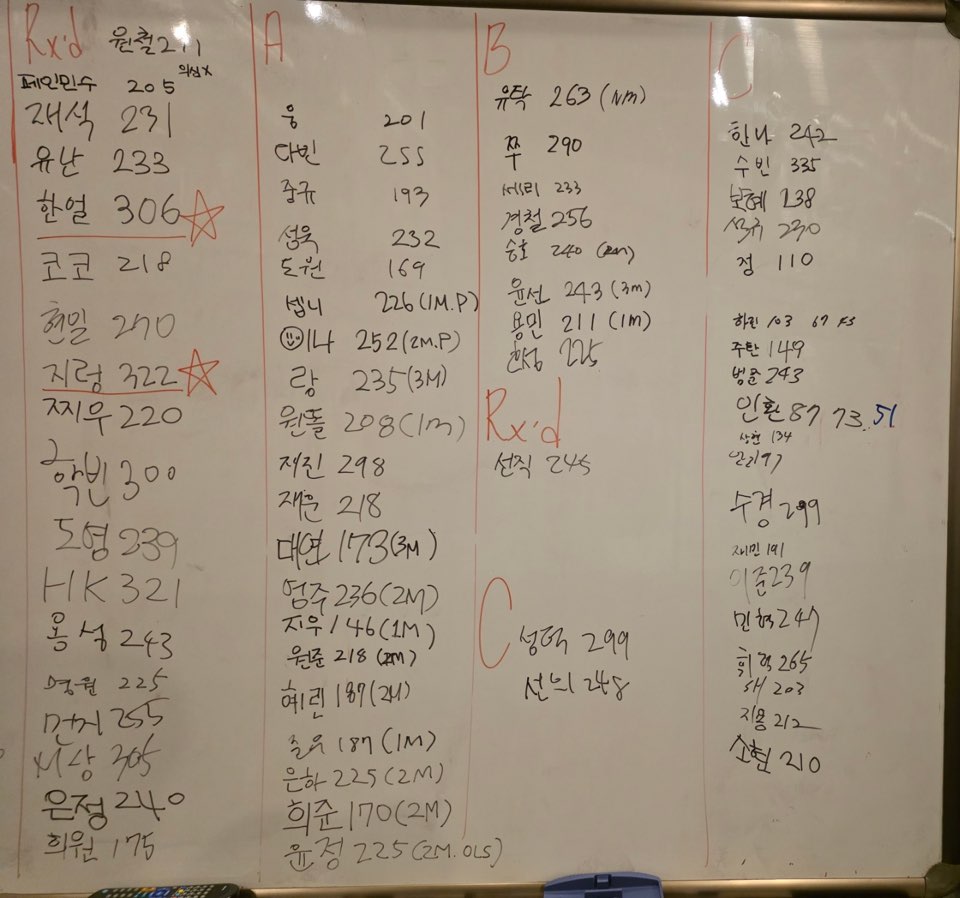 Rx'd 원철 211
페인민수 205 의심x
재석 231
유난 233
한얼 306
코코 218
현밀 270
지렁 322
찌우 220
학빈 300
도영 239
HK 321
용석 243
명월 225
먼지 255
시상 305
은정 240
희원 175
A
웅 201
다빈 255
중규 193
성욱 232
도원 169
쎕니 226 (1M.P)
이나 252 (2M.P)
랑 235 (3M)
원돌 208 (1m)
재진 298
재운 218
대연 173 (3M)
엄주 236 (2M)
지우 146 (1M)
원준 218 (2M)
혜린 187 (2M)
187 (1M)
은하 225 (2M)
희준 170 (2M)
윤정 225 (2M.OLS)
B
유탁 263 (NM)
쭈 290
쎄리 233
경철 256
승호 240
윤선 243 (3m)
용민 211 (1m)
한성 225
Rx'd
선직 245
C
성덕 299
선의 248
C
한나 242
수빈 335
보혜 238
석규 230
정 110
하린 103 67 FS
주탄 149
범준 243
인환 87 73 51
상헌 134
197
수경 299
재민 191
이준 239
민혁 247
휘혁 265
새 203
지용 212
소현 210